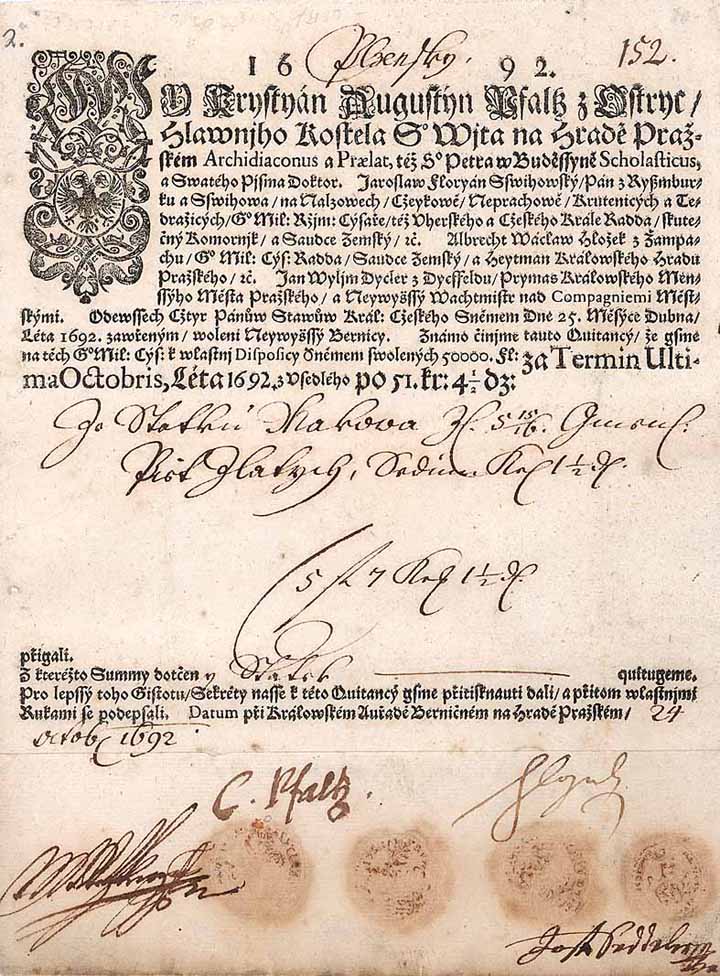 2.
Plzensky. 152.
1 6 9 2.
MY Krystyán Augustyn Pfaltz z Ostryc/
Hlawnjho Kostela Sº Wjta na Hradě Praž-
ském Archidiaconus a Prælat, též Sº Petra w Buděssyně Scholasticus,
a Swatého Pisma Doktor. Jaroslaw Floryán Sswihowský/ Pán z Ryßmbur-
ku a Sswihowa/ na Nalzowech/ Cžeykowě/ Neprachowě/ Krutenicých a Te-
dražicých/ Gº Mil: Ržjm: Cýsaře/ též Uherského a Cžeského Krále Radda/ skute-
čný Komornjk/ a Saudce Zemský/ ꝛč. Albrecht Wácław Hložek z Žampa-
chu/ Gº Mil: Cýs: Radda/ Saudce Zemský/ a Heytman Králowského Hradu
Pražského/ ꝛč. Jan Wyljm Dycler z Dycffeldu/ Prymas Králowského Men-
ssýho Města Pražského/ a Neywyßssý Wachtmistr nad Compagniemi Měst-
skými. Odewssech Cžtyr Pánůw Stawůw Král: Cžeského Sněmem Dne 25. Měsýce Dubna/
Léta 1692. zawřeným/ woleni Neywyßssý Bernicy. Známo činjme tauto Quitancý/ že gsme
na těch Gº Mil: Cýs: k wlastnj Disposicy Sněmem swolených 50000. Fl: za Termin Ulti-
ma Octobris, Léta 1692. z Usedlého po 51. kr: 4½ dz:
Ze Statku Makowa 5 15/16 Gmen:
Piet Zlatych, Sedim 1½
5 7 1½
přigali.
Z kteréžto Summy dotčeny Statek quitugeme.
Pro lepssý toho Gistotu/ Sekréty nasse k této Quitancý gsme přitisknauti dali/ a přitom wlastnjmi
Rukami se podepsali. Datum při Králowském Auřadě Berničném na Hradě Pražském/ 24
octob 1692.
C. Pfaltz.